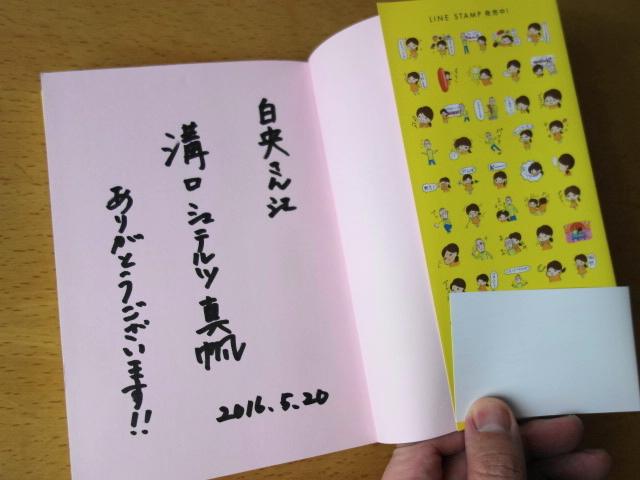 LINE STAMP 発売中!
白央さん江
溝口シュテルツ真帆
ありがとうございます!!
2016.5.20